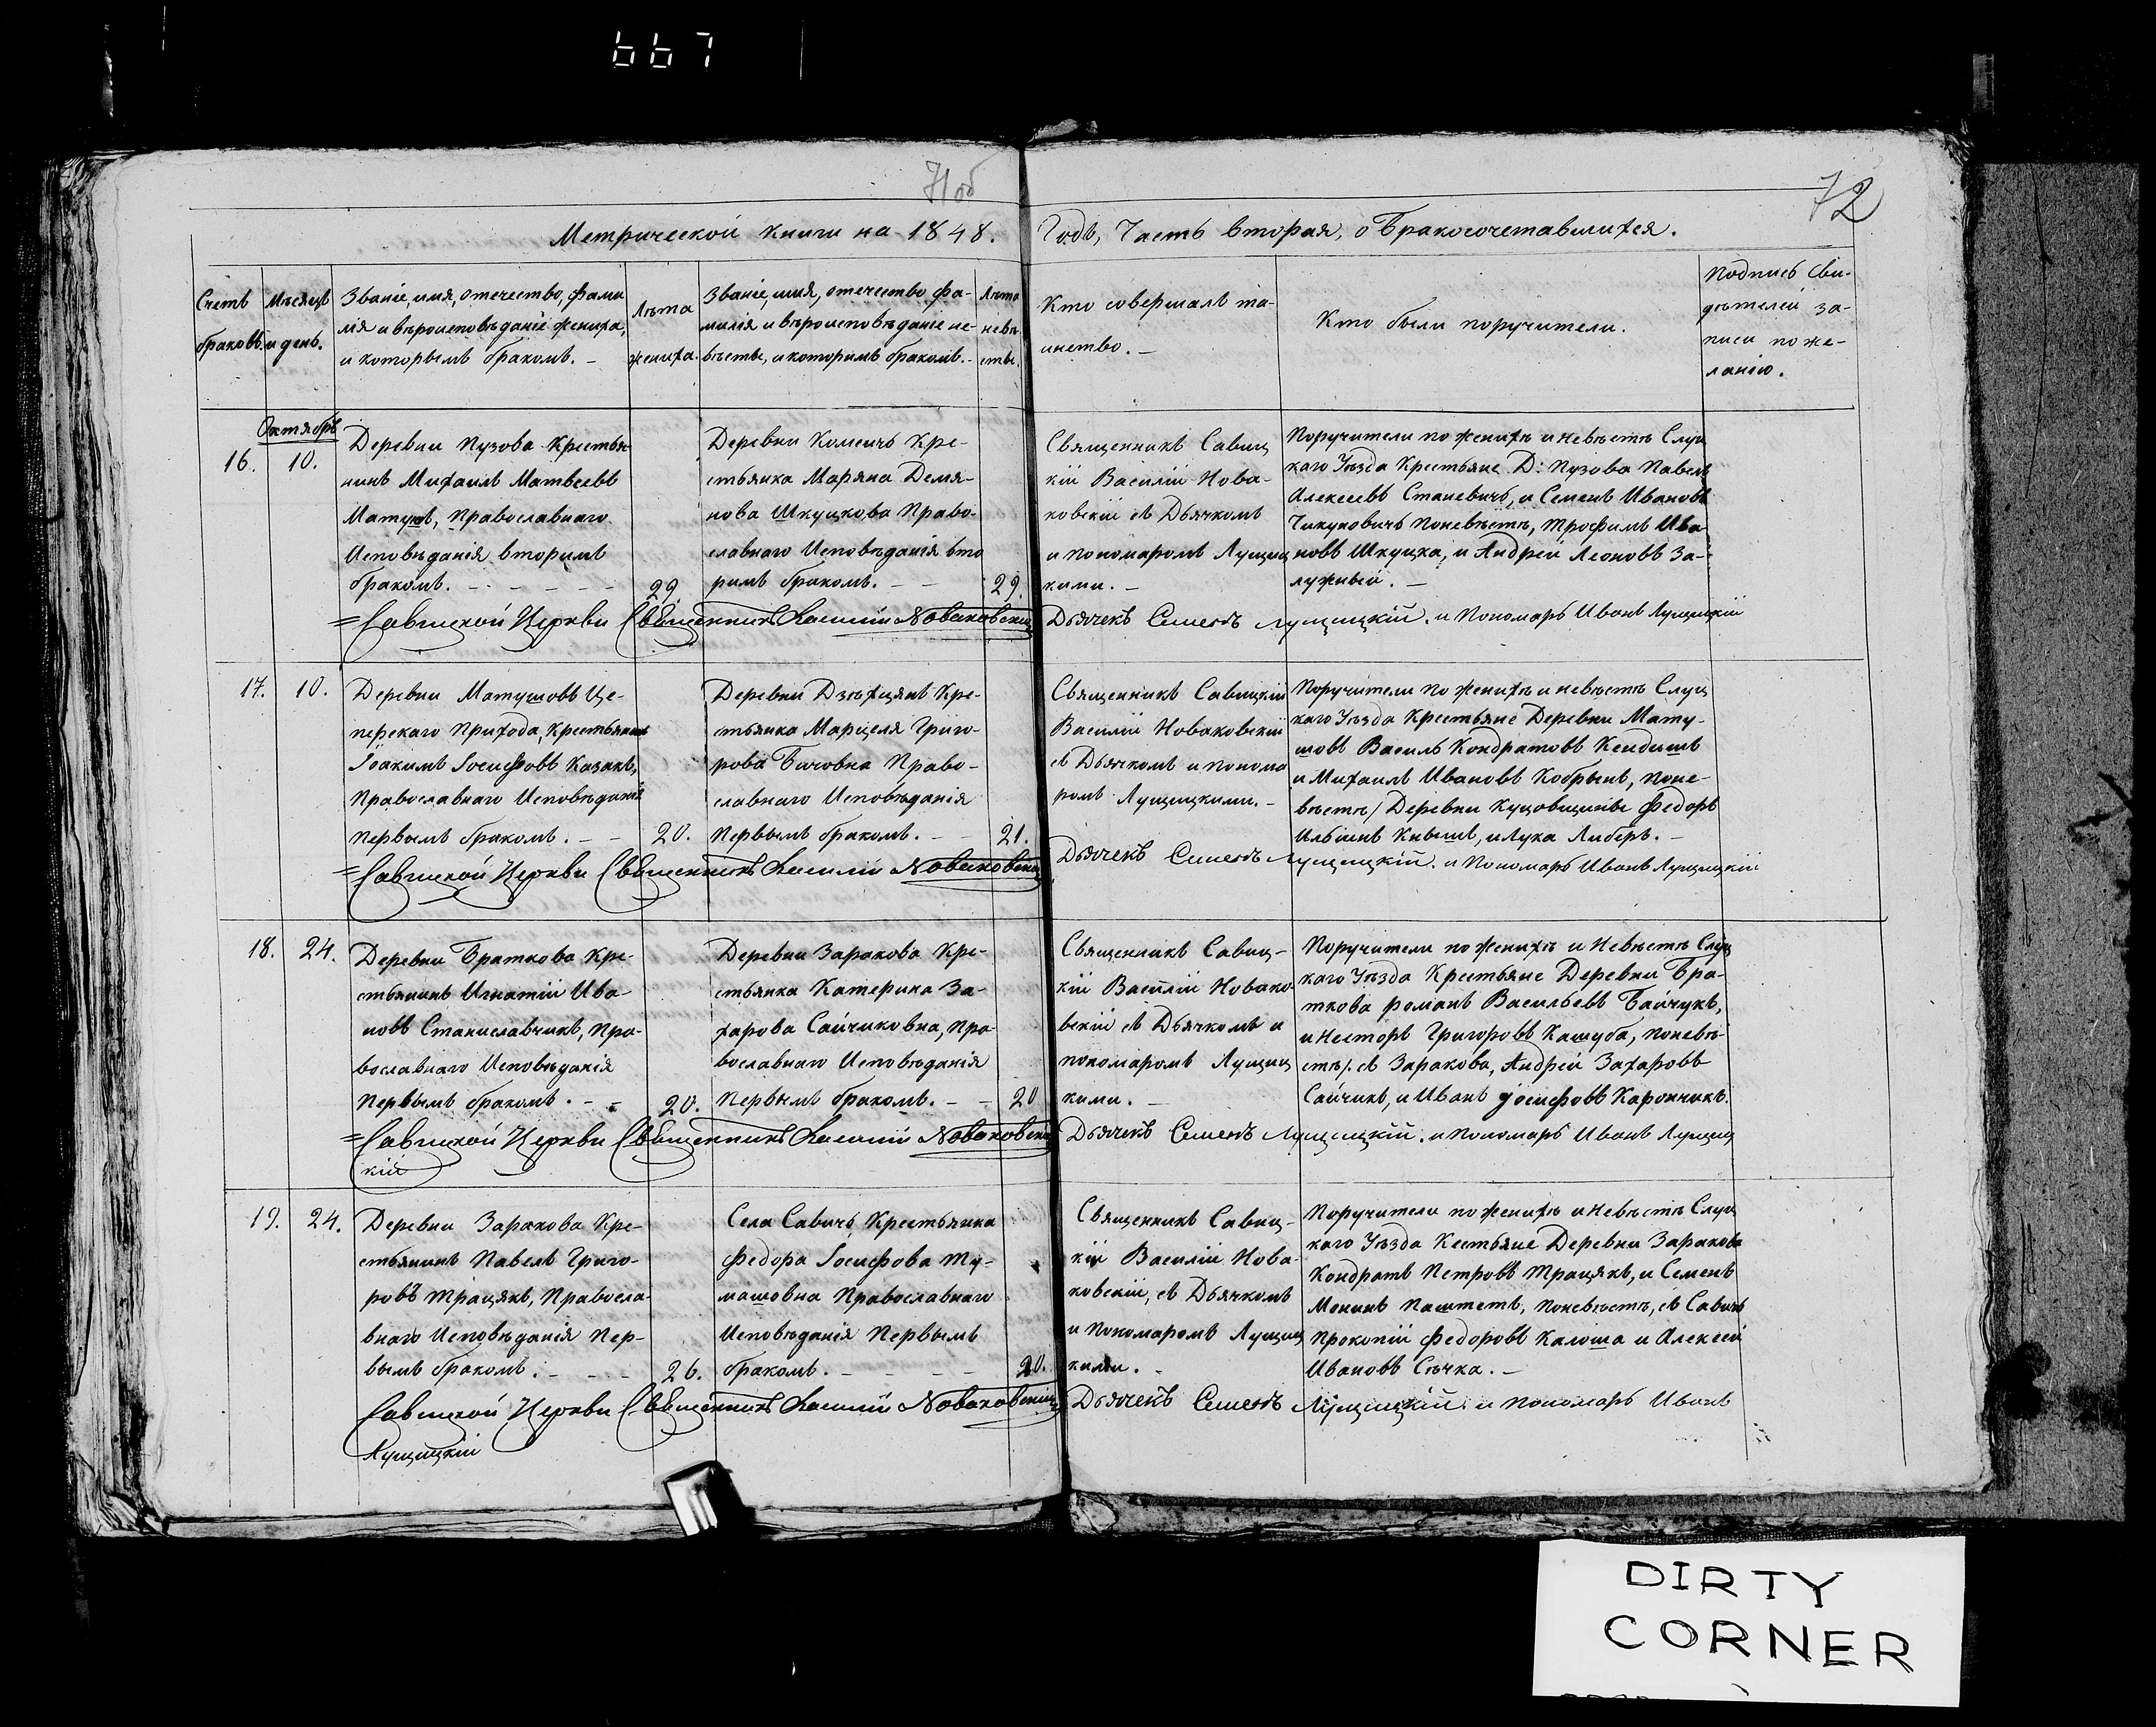 667
71 об
72
Метрической книги на 1848. Годъ, Часть вторая, о Бракосочетавшихся.
Счетъ
браковъ.
Мѣсяцъ
и день.
Званіе, имя, отечество, фами
лія и вѣроисповѣданіе жениха,
и которымъ бракомъ. –
Лѣта
жениха.
Званіе, имя, отечество фа-
милія и вѣроисповѣданіе не-
вѣсты, и которимъ бракомъ. –
Лѣта
невѣ
сты.
Кто совершалъ та-
инство. –
Кто были поручители.
Подпись сви-
дѣтелей за-
писи по же-
ланію.
Октябрь
16. 10.
Деревни Пузова Крестья
нинъ Михаилъ Матвеевъ
Матушъ, Православнаго
Исповѣданія вторимъ
бракомъ. – – – – –
29.
Деревни Комсичь Кре-
стьянка Маряна Демя-
нова Шкуцкова Право-
славнаго Исповѣданія вто
римъ бракомъ. – –
29.
Священникъ Савиц
кій Василій Нова-
ковскій съ Дьячкомъ
и пономаромъ Лущиц
кими. –
Поручители по женихѣ и невѣстѣ Слуц
каго Уѣзда Крестьяне Д: Пузова Павелъ
Алексеевъ Станевичь, и Семенъ Ивановъ
Чикуновичь поневѣстѣ, Трофимъ Ива
новъ Шкуцка, и Андрей Леоновъ За-
лужный. –
=Савицкой Церкви Священникъ Василій Новаковскій Дьячекъ Семенъ Лущицкій. и Пономарь Иванъ Лущицкій
17. 10.
Деревни Матушовъ Це-
перскаго Прихода, Крестьянинъ
Іоакимъ Іосифовъ Казакъ,
Православнаго Исповѣданія
первымъ бракомъ. – –
20.
Деревни Дзѣхцянъ Кре-
стьянка Марцеля Григо-
рова Бичовна Право-
славнаго Исповѣданія
Первымъ бракомъ. – –
21.
Священникъ Савицкій
Василій Новаковскій
съ Дьячкомъ и понома
ромъ Лущицкими. –
Поручители по женихѣ и невѣстѣ Слуц
каго Уѣзда Крестьяне Деревни Мату-
шовъ Василь Кондратовъ Кендишъ
и Михаилъ Ивановъ Кобрынъ, поне-
вѣстѣ/ Деревни Куцовщины Федоръ
Ильинъ Кнышъ, и Лука Либеръ. –
=Савицкой Церкви Священникъ Василій Новаковскій Дьячекъ Семенъ Лущицкій. и Пономарь Иванъ Лущицкій
18. 24.
Деревни Браткова Кре-
стьянинъ Игнатій Ива
новъ Станиславчикъ, Пра-
вославнаго Исповѣданія
Первымъ бракомъ. – –
20.
Деревни Заракова Кре-
стьянка Катерина За-
харова Сайчиковна, Пра-
вославнаго Исповѣданія
Первымъ бракомъ. – –
20
Священникъ Савиц-
кій Василій Новако-
вскій съ Дьячкомъ и
пономаромъ Лущиц
кими. –
Поручители по женихѣ и Невѣстѣ Слуц
каго Уѣзда Крестьяне Деревни Бра-
ткова Романъ Васильевъ Байчукъ,
и Несторъ Григоровъ Кашуба, поневѣ-
стѣ/. съ Заракова, Андрей Захаровъ
Сайчикъ, и Иванъ Іосифовъ Карончикъ.
=Савицкой Церкви Священникъ Василій Новаковскій Дьячекъ Семенъ Лущицкій. и Пономарь Иванъ Лущиц
кій
19. 24.
Деревни Заракова Кре-
стьянинъ Павелъ Григо-
ровъ Трацякъ, Правосла-
внаго Исповѣданія Пер-
вымъ бракомъ. – – –
26.
Села Савичь Крестьянка
Федора Іосифова Ту-
машовна Православнаго
Исповѣданія Первымъ
бракомъ. – – – –
20.
Священникъ Савиц-
кій Василій Нова-
ковскій, съ Дьячкомъ
и Пономаромъ Лущиц
кими. –
Поручители по женихѣ и Невѣстѣ Слуц
каго Уѣзда Кестьяне Деревни Заракова
Кондратъ Петровъ Трацякъ, и Семенъ
Мининъ Паштетъ, поневѣстѣ, съ Савичь
Прокопій Федоровъ Калоша и Алексей
Ивановъ Сѣчка. –
Савицкой Церкви Священникъ Василій Новаковскій Дьячекъ Семенъ Лущицкій. и Пономарь Иванъ
Лущицкій
DIRTY
CORNER